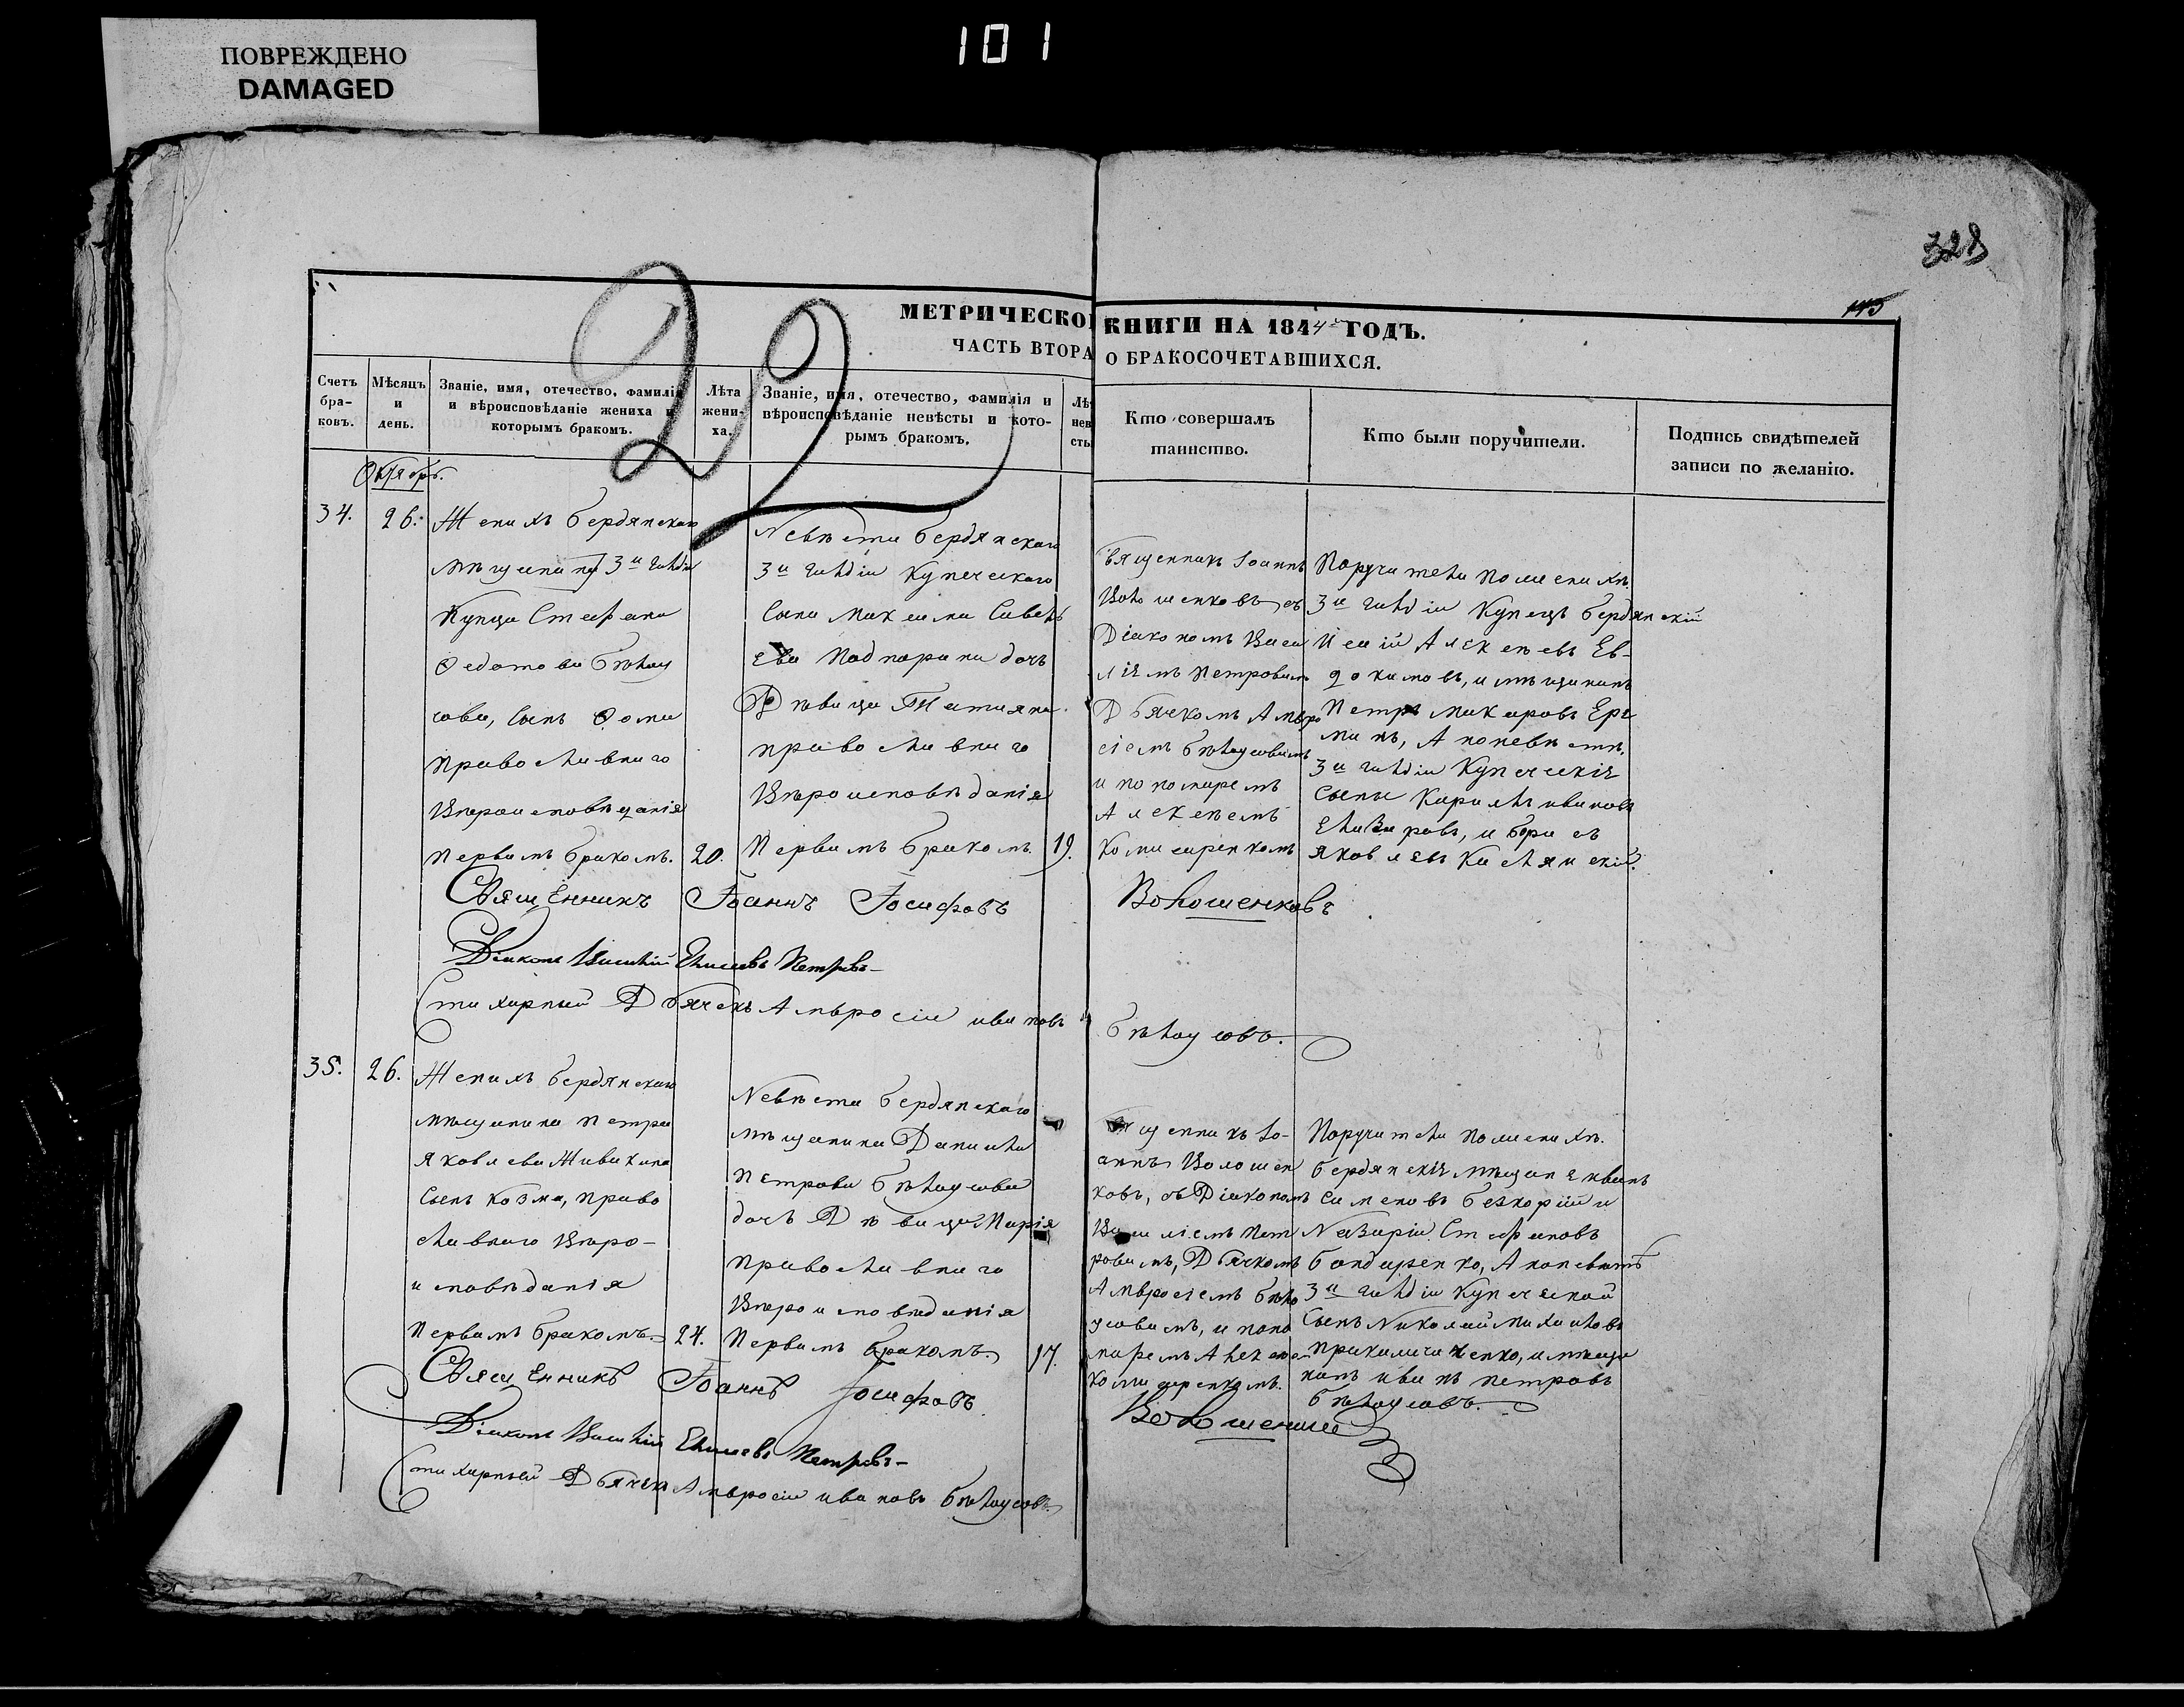 ПОВРЕЖДЕНО
DAMAGED
101
328
МЕТРИЧЕСКОЙ КНИГИ НА 1844 ГОДЪ.
ЧАСТЬ ВТОРА О БРАКОСОЧЕТАВШИХСЯ.
Счетъ бра-ковъ.
Мѣсяцъ и день.
Званіе, имя, отечество, фамилія
и вѣроисповѣданіе жениха и
которымъ бракомъ.
Лѣта жени-ха.
Званіе, имя, отечество, фамилія и
вѣроисповѣданіе невѣсты и кото-
рымъ бракомъ.
Лѣ нев сты
Кто совершалъ
таинство.
Кто были поручители.
Подпись свидѣтелей
записи по желанію.
Октябрь.
34.
26.
Женихъ бердянскаго
мѣщанина 3й гильдіи
Купца Стефана
Федотова бѣлоу
сова, сынъ Фома
православнаго
вѣроисповѣданія
первымъ бракомъ.
20.
Невѣста бердянскаго
3й гильдіи купеческаго
сына Максима Савель
ева Подпорина дочь
Дѣвица Татіяна
православнаго
вѣроисповѣданія
первымъ бракомъ.
19.
Священникъ Іоаннъ
Волошенковъ съ
Діакономъ Васи
ліемъ Петровымъ
Дьячкомъ Амвро
сіемъ бѣлоусовымъ
и пономаремъ
Алексѣемъ
Комисаренкомъ
Поручители по женихѣ
3й гильдіи Купецъ бердянскій
Исай Алексѣевъ Ев-
докимовъ, и мѣщанинъ
Петръ Макаровъ Ере
минъ, А по невѣстѣ
3й гильдіи Купеческіе
сыны Кирилъ ивановъ
Елизаровъ, и борисъ
яковлевъ Кислянскій.
Священникъ Іоаннъ Іосифовъ Волошенковъ
Діаконъ Василій Елисеевъ Петровъ
Стихарный Дьячекъ Амвросій ивановъ бѣлоусовъ.
35.
26.
Женихъ бердянскаго
мѣщанина Петра
яковлева Живакина
сынъ козма, право
славнаго вѣро-
исповѣданія
первымъ бракомъ.
24.
Невѣста бердянскаго
мѣщанина Даниила
Петрова бѣлоусова
дочь Дѣвица Марія
православнаго
вѣроисповѣданія
первымъ бракомъ.
17.
Священникъ Іо-
аннъ Волошен
ковъ, съ Діакономъ
Василіемъ Пет
ровымъ, Дьячкомъ
Амвросіемъ бѣло
усовымъ, и поно
маремъ Алексѣе
Комисаренкомъ.
Поручители по женихѣ.
бердянскіе мѣщане иванъ
Симеоновъ и
Назарій Стефановъ
бондаренко, А по невѣстѣ
3й гильдіи Купеческой
сынъ Николай Михаиловъ
и мѣща
нинъ иванъ петровъ
бѣлоусовъ.
Священникъ Іоаннъ Іосифовъ
Діаконъ Василій Елисеевъ Петровъ
Стихарный Дьячекъ Амвросій ивановъ бѣлоусовъ.